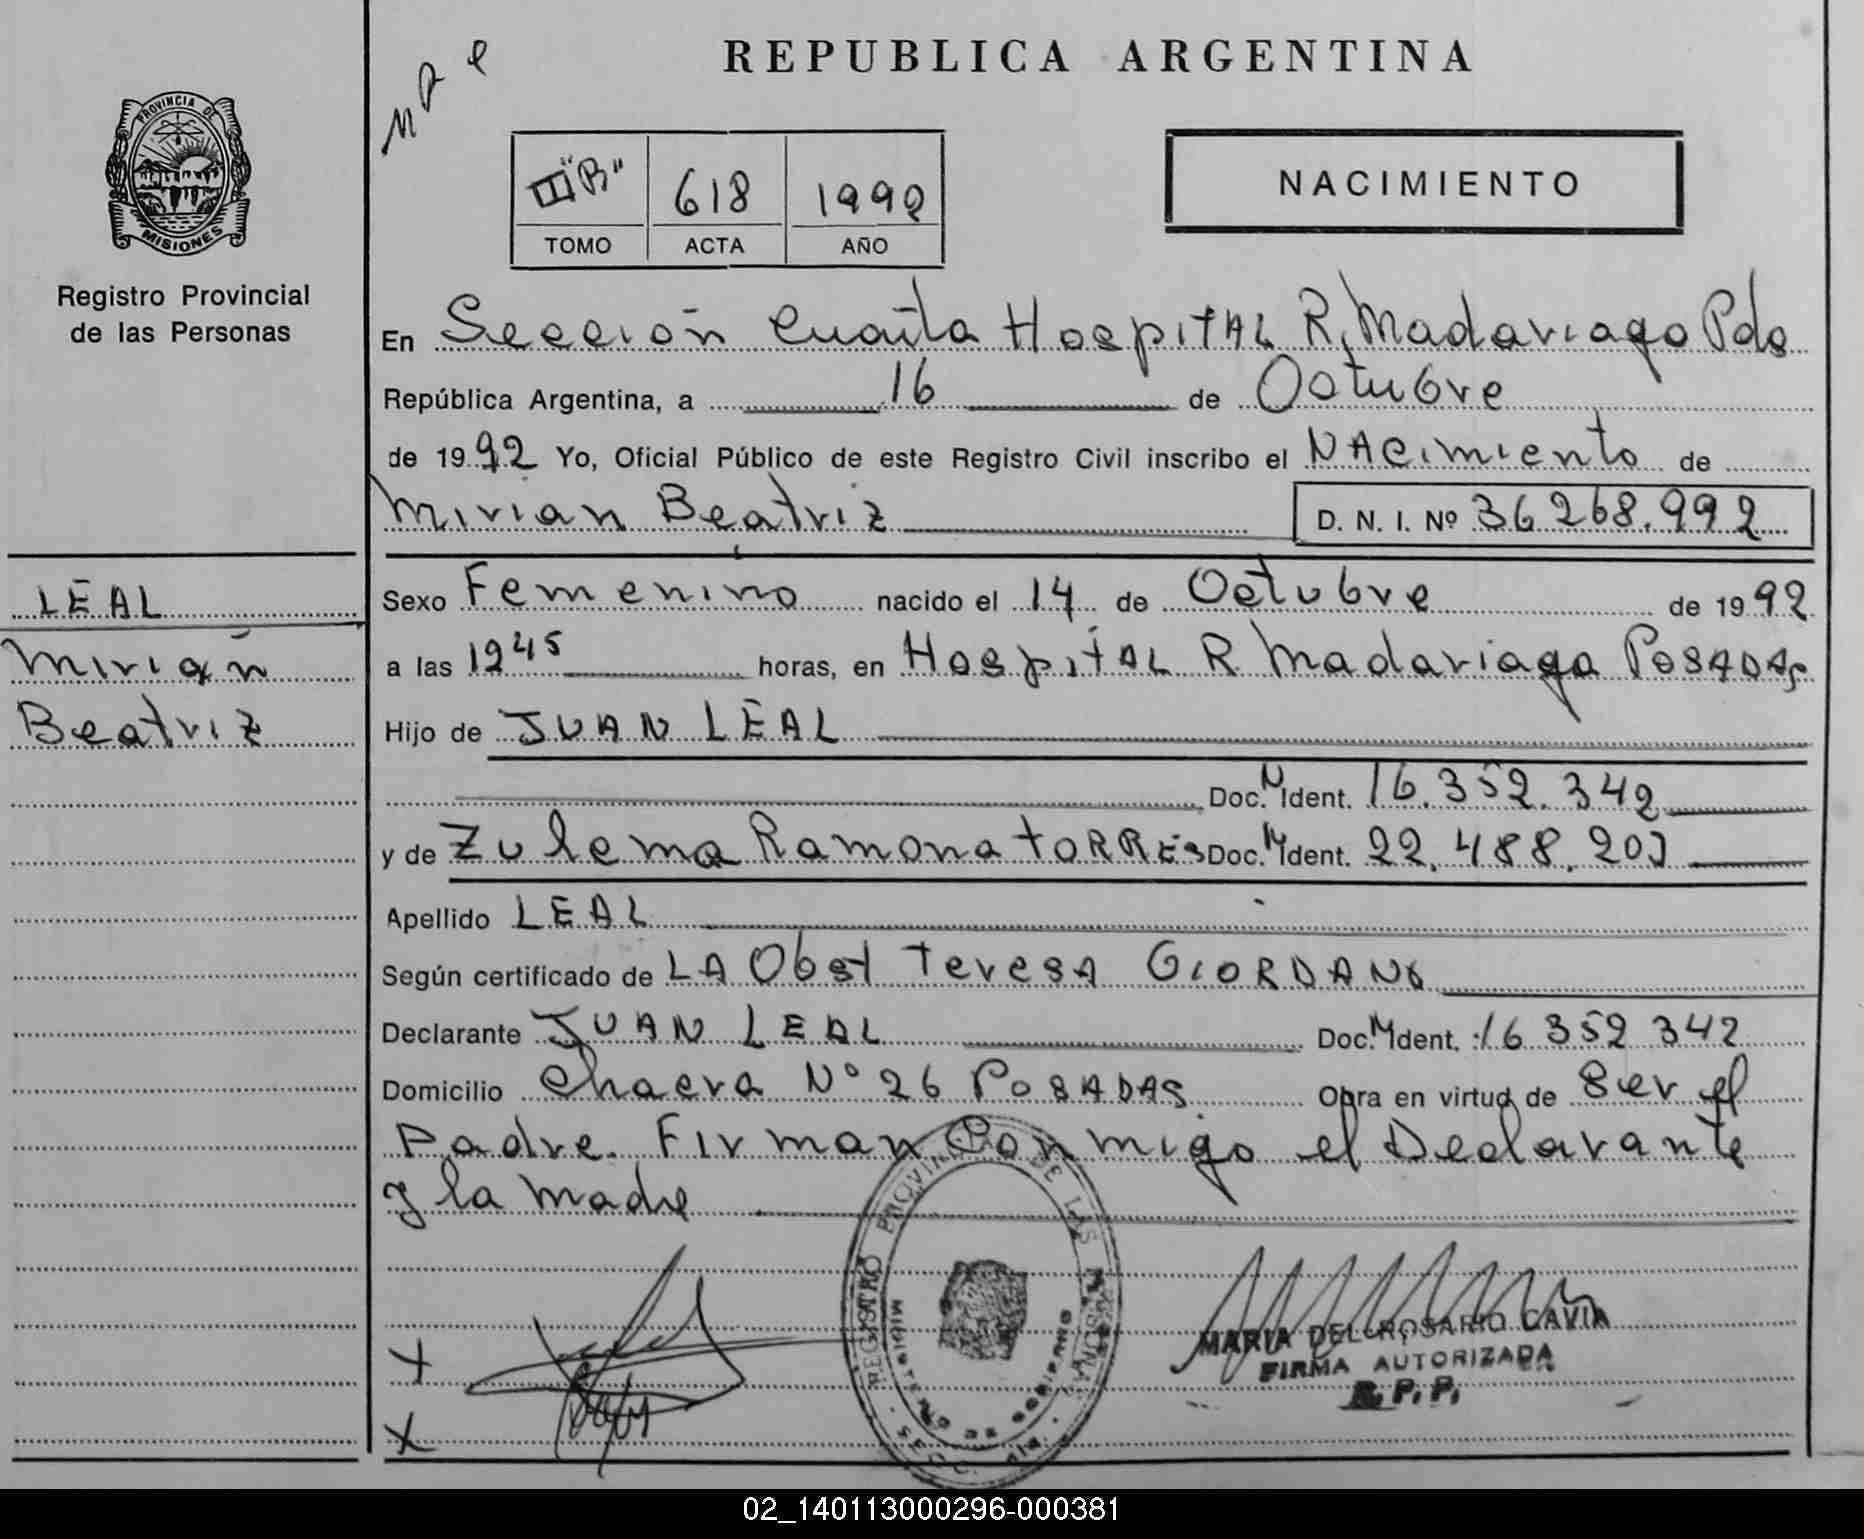 REPUBLICA ARGENTINA
PROVINCIA DE
MISIONES
Registro Provincial
de las Personas
II "B" 618 1992
TOMO ACTA AÑO
NACIMIENTO
En Sección Cuarta Hospital R. Madariaga Pdas
República Argentina, a 16 de Octubre
de 1992 Yo, Oficial Público de este Registro Civil inscribo el Nacimiento de
Mirian Beatriz D. N. I. Nº 36.268.992
LEAL
Mirian
Beatriz
Sexo Femenino nacido el 14 de Octubre de 1992
a las 1245 horas, en Hospital R Madariaga Posadas
Hijo de JUAN LEAL
Doc. M Ident. 16.352.342
y de Zulema Ramona TORRES Doc. M Ident. 22.488.207
Apellido LEAL
Según certificado de LA Obst Teresa GIORDANO
Declarante JUAN LEAL Doc. M Ident. 16 352 342
Domicilio Chacra Nº 26 Posadas Obra en virtud de Ser el
Padre. Firman Conmigo el Declarante
y la madre
REGISTRO PROVINCIAL DE LAS PERSONAS
MINISTERIO DE GOBIERNO
MARIA DEL ROSARIO CAVIA
FIRMA AUTORIZADA
R. P. P.
X
X
02_140113000296-000381